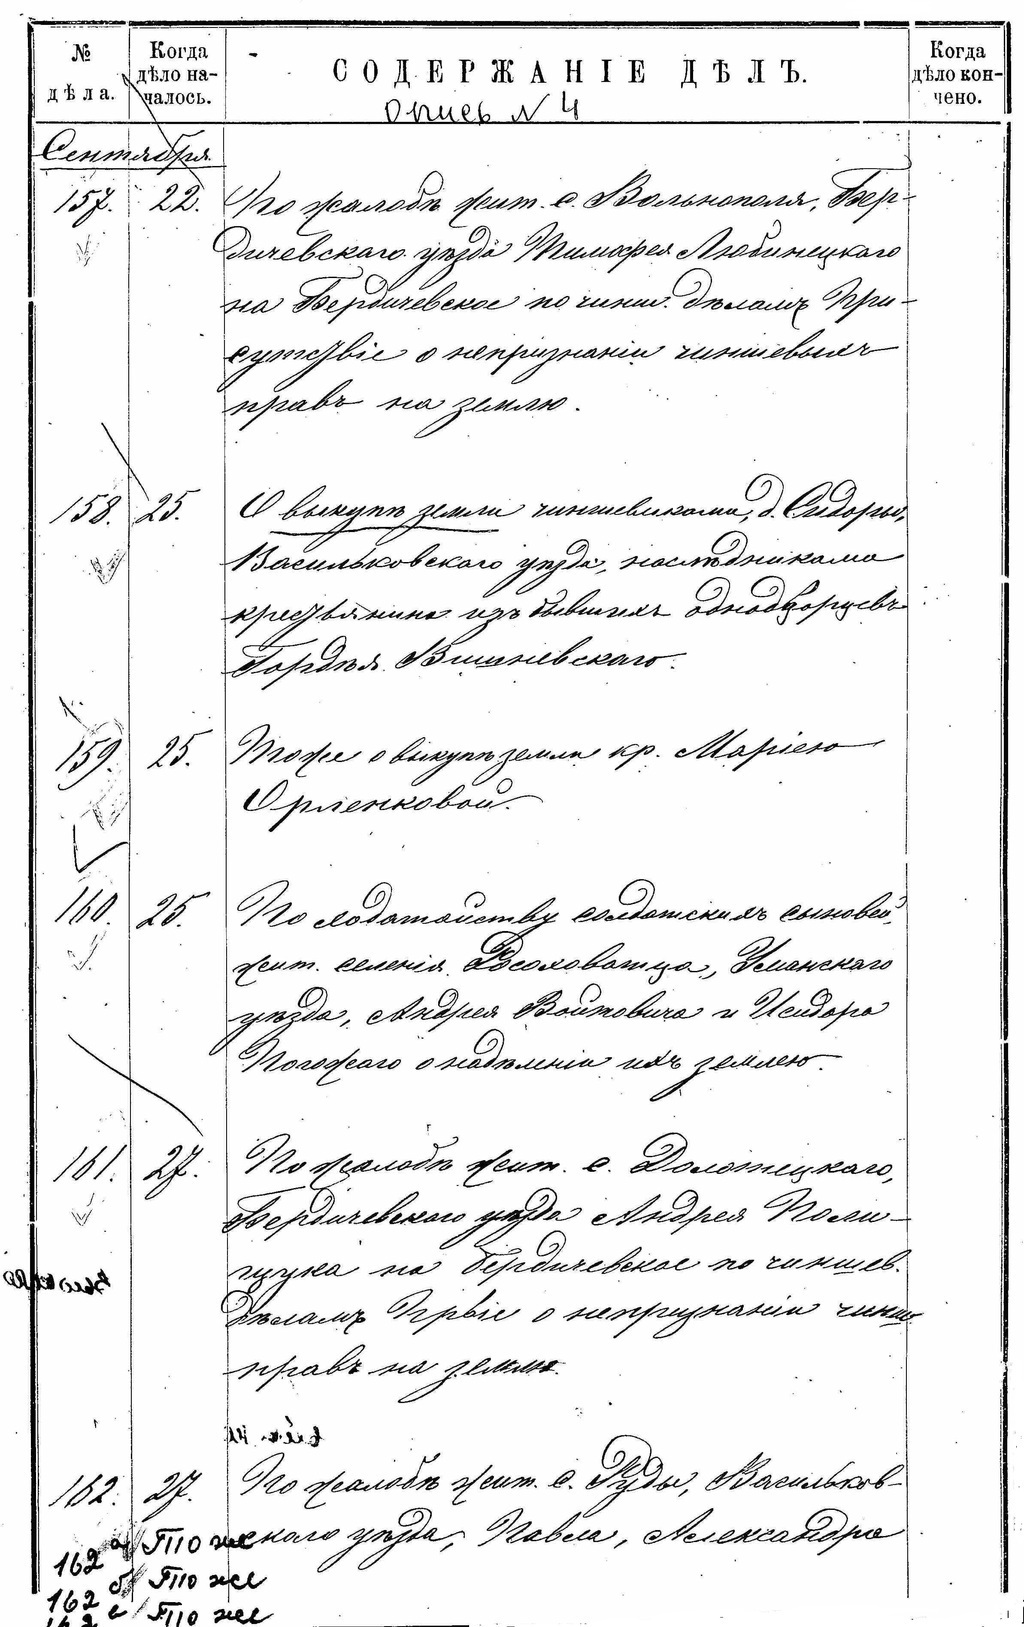 № дѣла.
Когда дѣло началось.
СОДЕРЖАНІЕ ДѢЛЪ.
Когда дѣло кончено.
Опись N 4
Сентября
157. 22. По жалобѣ жит. с. Вольнополя, Бер-
дичевскаго уѣзда Тимофея Любинецкаго
на Бердичевское по чинш. дѣламъ При-
сутствіе о непризнаніи чиншевыхъ
правъ на землю.
158. 25. О выкупѣ земли чиншевиками, д. Сидоры,
Васильковскаго уѣзда, наслѣдниками
крестьянина изъ бывшихъ однодворцевъ
Гордѣя Вишневскаго.
159. 25. Тоже о выкупѣ земли кр. Маріею
Орленковой.
160. 25. По ходатайству солдатскихъ сыновей,
жит. селенія Россоховатца, Уманскаго
уѣзда, Андрея Войтовича и Исидора
Погожаго о надѣленіи ихъ землею.
161. 27. По жалобѣ жит. с. Долотецкаго,
Бердичевскаго уѣзда Андрея Поли-
щука на Бердичевское по чиншев.
дѣламъ Првіе о непризнаніи чинш.
правъ на землю.
162. 27. По жалобѣ жит. с. Руды, Васильков-
скаго уѣзда, Павла, Александра
162 а/ То же
162 б/ То же
162 в/ То же